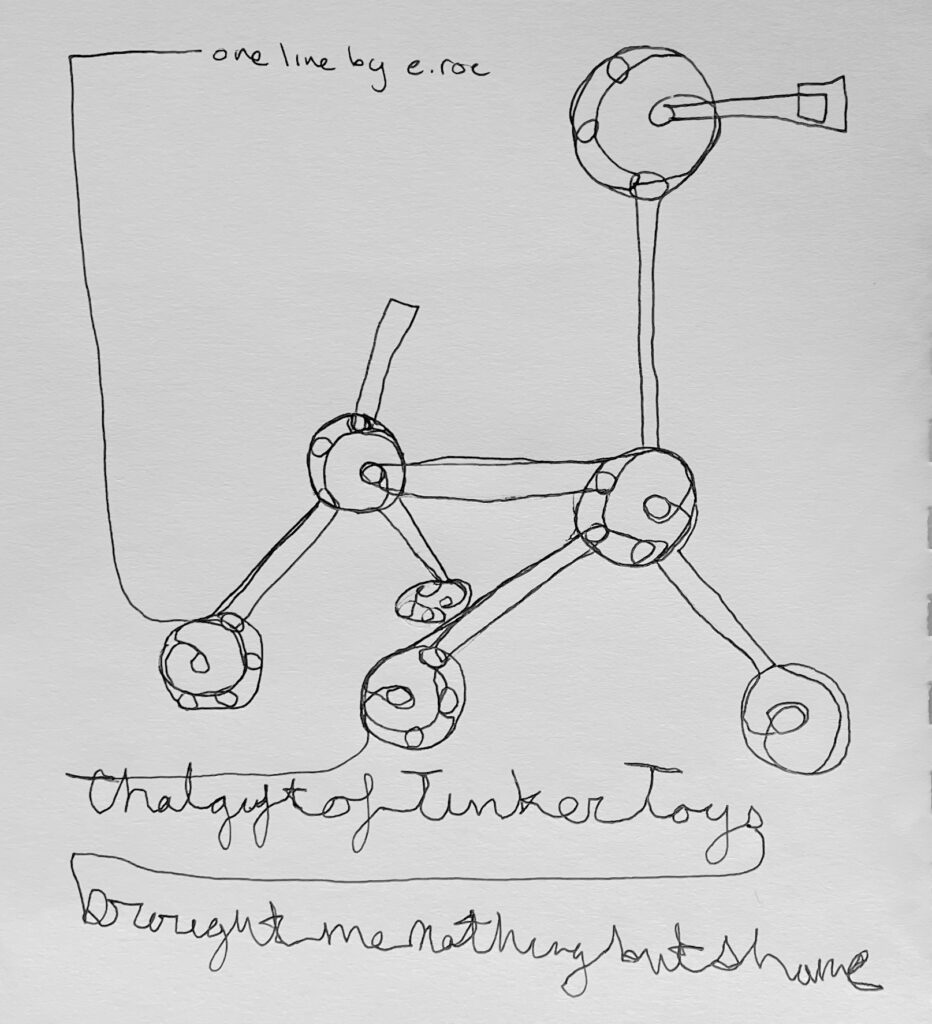 one line by e.roe
that gift of Tinker Toys
brought me nothing but shame